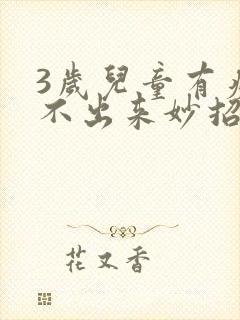 3歲兒童有
不出来妙招
花又香